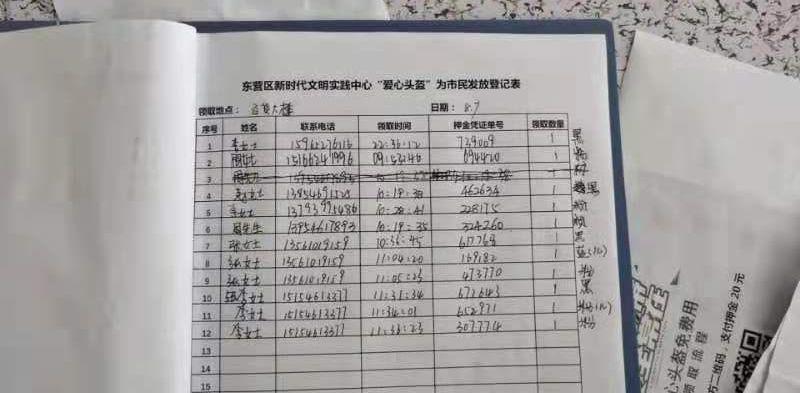 东营区新时代文明实践中心“爱心头盔”为市民发放登记表
领取地点： 百货大楼 日期： 8.7
序号 姓名 联系电话 领取时间 押金凭证单号 领取数量
1 李女士 15965276116 22:36:12 729009 1 黑
2 周女士 15166241996 09:52:46 694420 1 粉
3 1
4 女士 13854691525 10:18:38 462634 1 黑
5 女士 13793995486 10:20:41 228175 1 粉
6 周先生 13954617893 10:19:35 324260 1
7 张女士 13561019159 10:36:45 617768 1 黑
8 张女士 13561019159 11:04:20 169182 1 蓝(儿)
9 张女士 13561019159 11:05:23 473770 1 粉
10 李女士 15154613377 11:31:34 672643 1 黑
11 李女士 15154613377 11:34:01 652971 1 粉(儿)
12 李女士 15154613377 11:33:23 307774 1 粉
13
14
15
心头盔免费用
领取流程
方二维码，支付押金 20 元